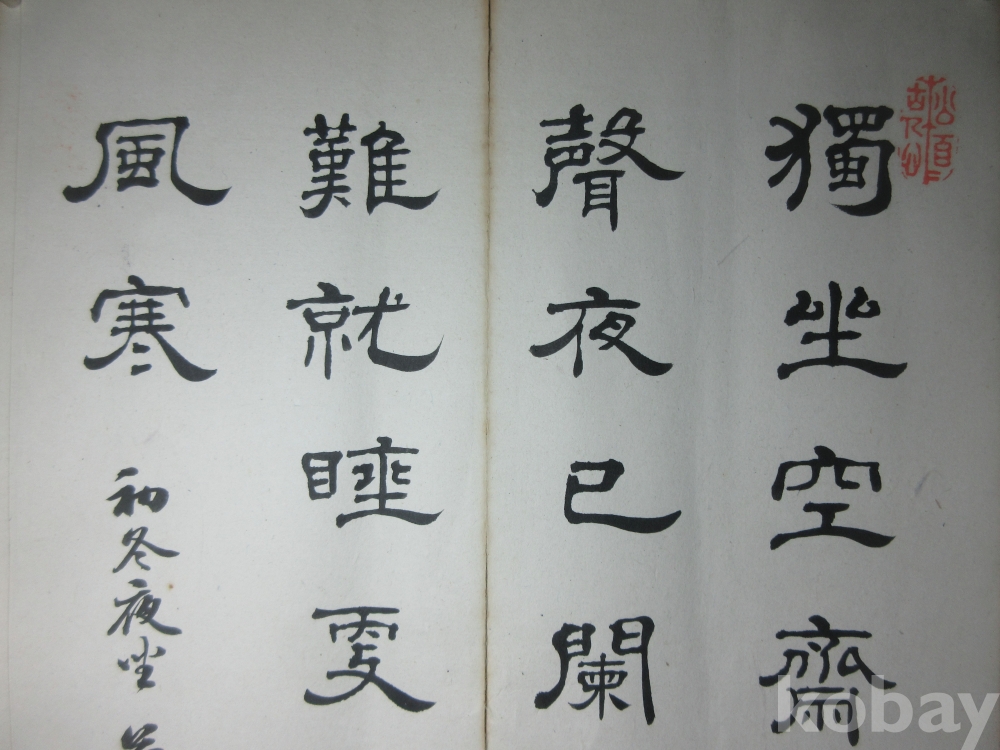 獨坐空齋
聲夜已闌
難就睡更
風寒
初冬夜坐
kobay